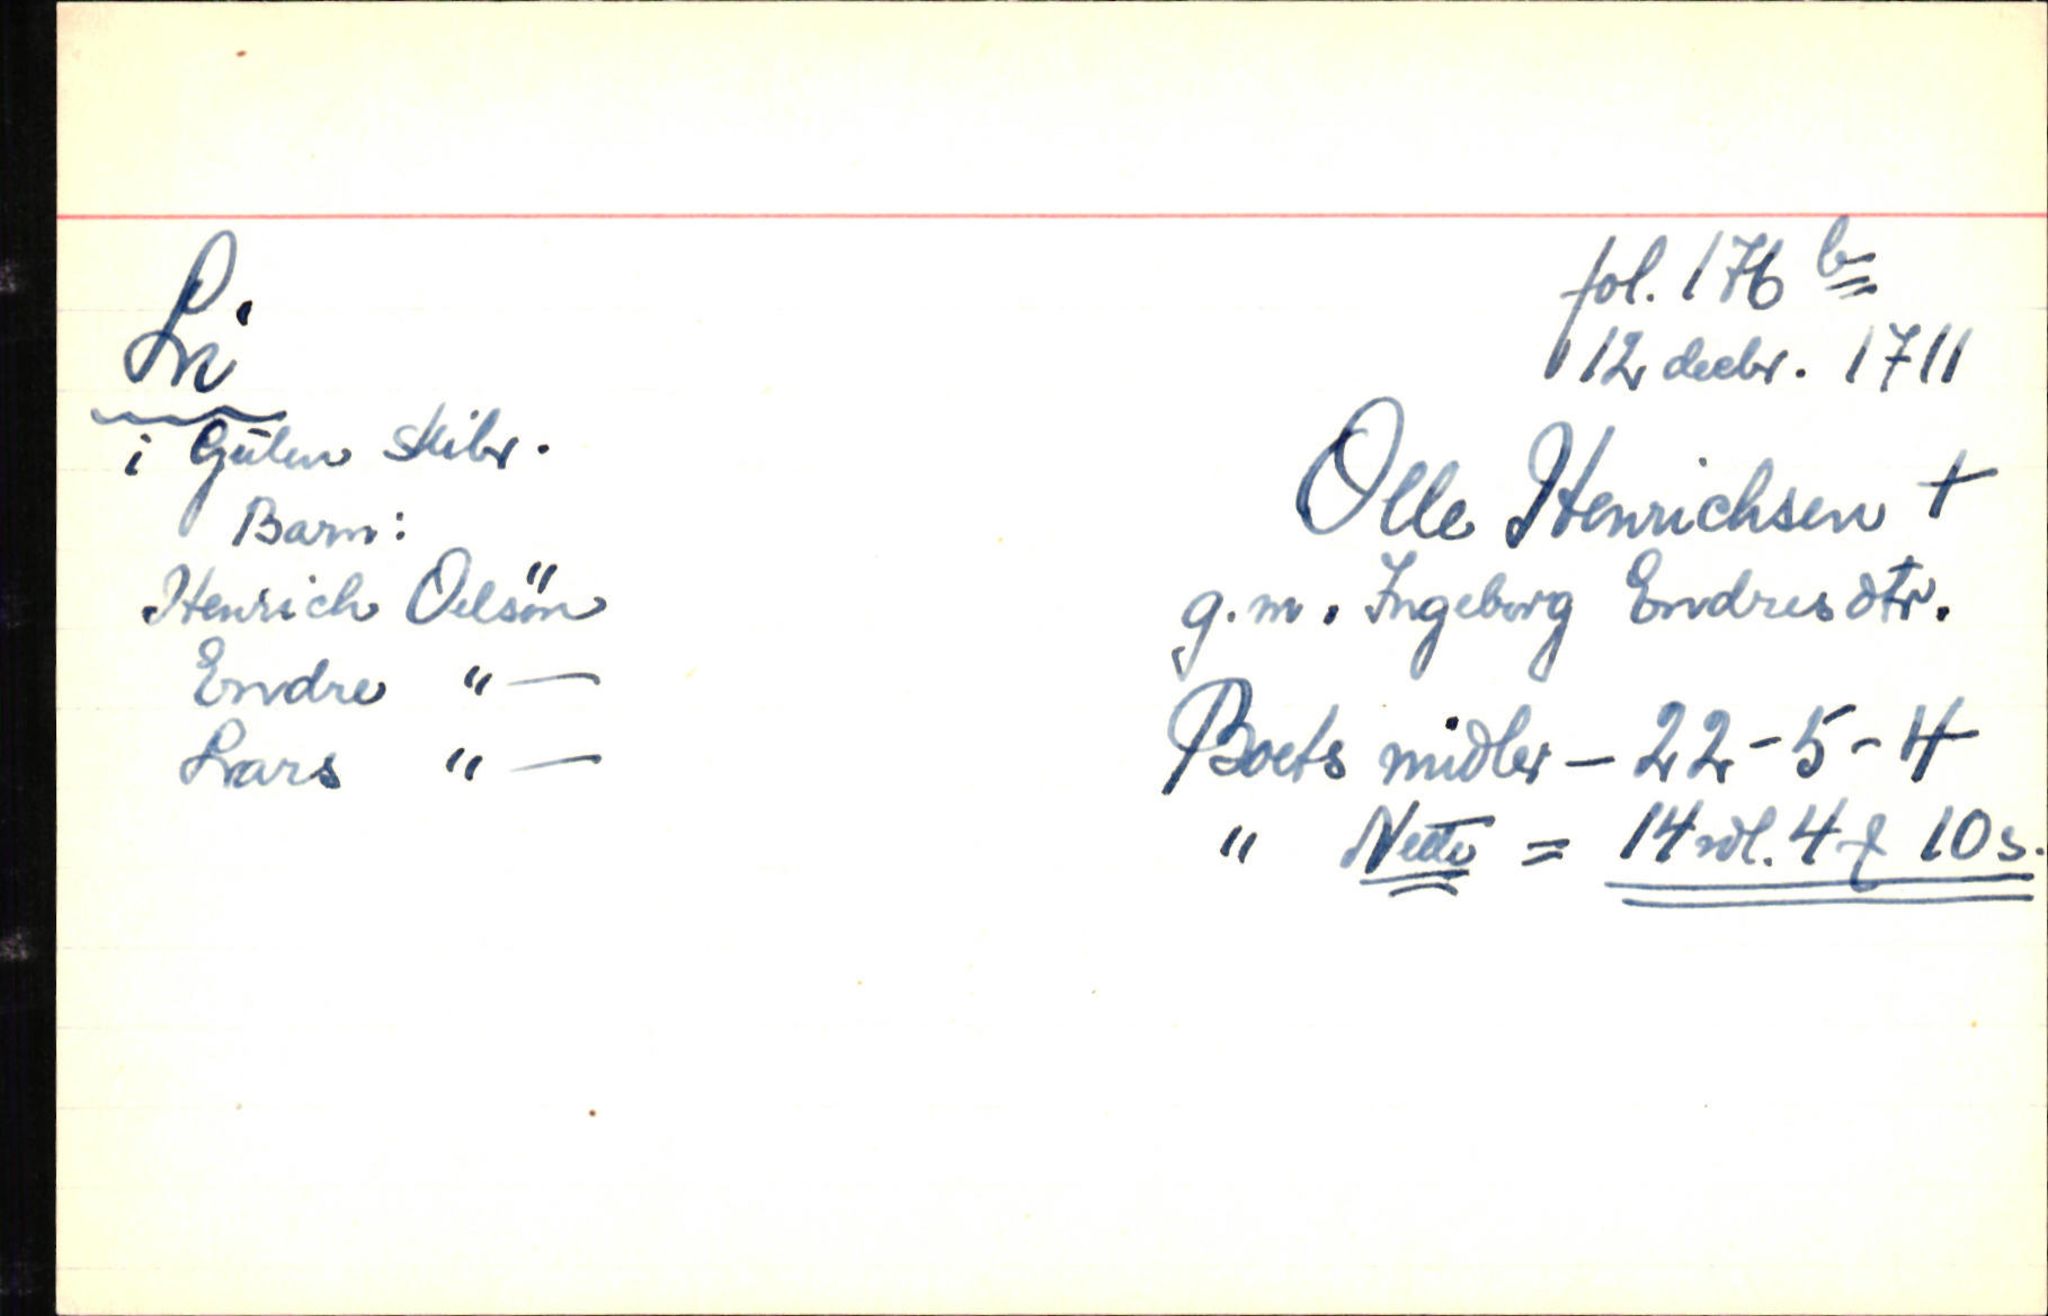 Li
i Gulen Skibr.
Barn:
Henrich Oelsön
Endre " —
Lars " —
fol. 176 b
12 decbr. 1711
Olle Henrichsen +
g.m. Ingeborg Endresdtr.
Boets midler – 22 – 5 – 4
" Netto = 14 rdl. 4 10 s.